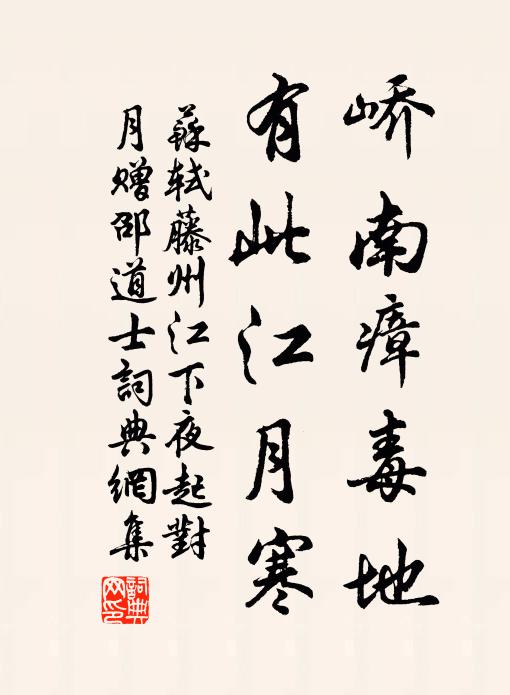 峤南瘴毒地
有此江月寒
蘇軾藤州江下夜起對
月贈邵道士詞典網集
詞典网印